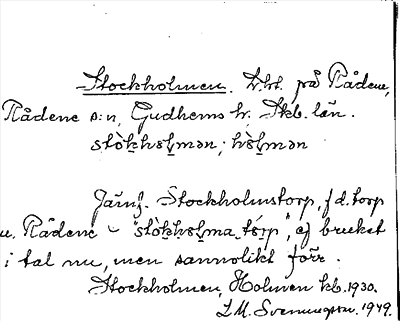 Stockholmen. Lht. på Rådene,
Rådene s:n, Gudhems hr, Skb. län.
stòk̬hol̬mən; hòl̬mən
Jämf. Stockholmstorp, f.d. torp
u. Rådene – "stòk̬h̬ol̬ma tórp", ej brukat
i tal nu, men sannolikt förr.
Stockholmen, Holmen kb. 1930.
L. M. Svenungsson. 1949.